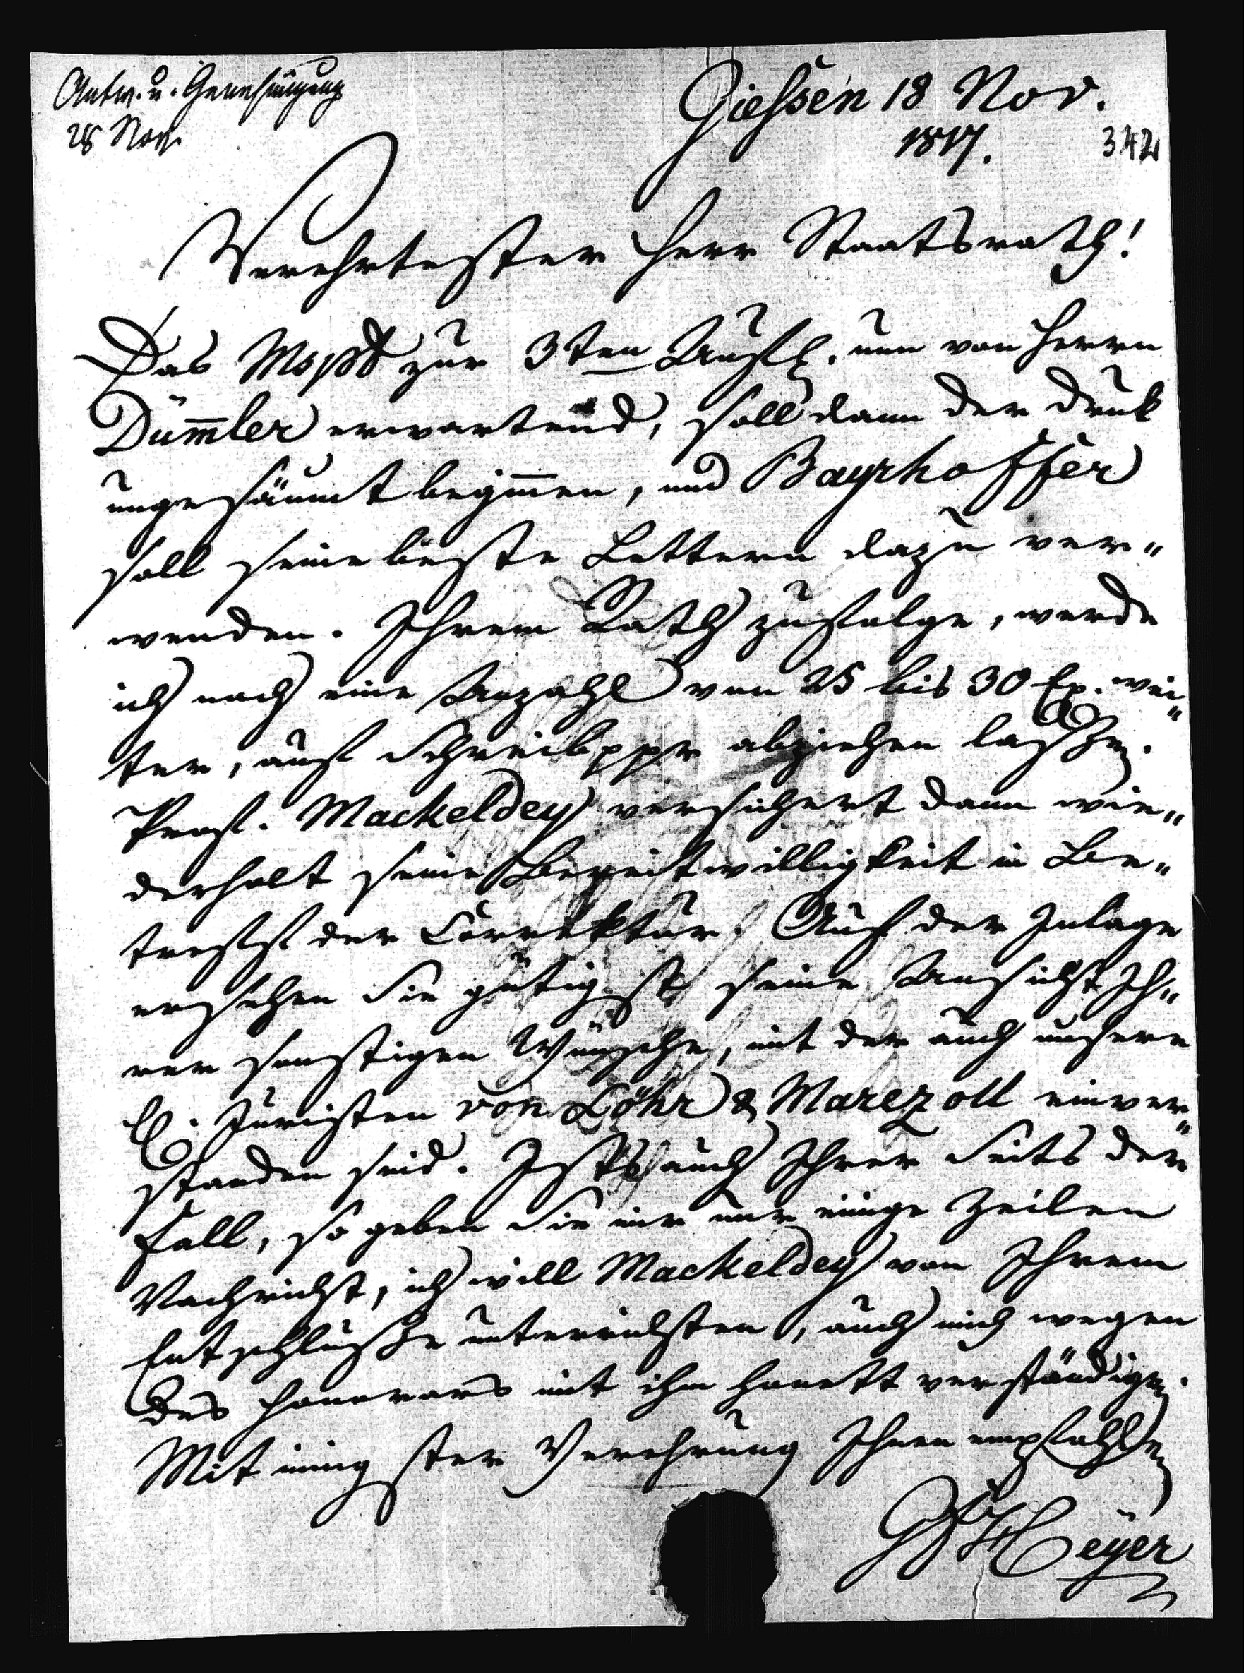 Antw. u. Genehmigung
28 Nov.
Giessen 18 Nov.
1817.
342
Verehrtester Herr Staatsrath!
Das Mspt zur 3ten Aufl. nun von Herrn
Dümmler erwartend, soll dann der Druk
ungesäumt beginnen, und Bayrhoffer
soll seine beste Lettern dazu ver„
wenden. Ihrem Rath zufolge, werde
ich noch eine Anzahl von 25 bis 30 Ex. wei„
ter, auf Schreibppr abziehen lassen.
Prof. Mackeldey versichert dann wie„
derholt seine Bereitwilligkeit in Be„
treff der Correktur. Auf der Inlage
ersehen Sie gütigst seine Ansicht Ih„
rer sonstigen Wünsche, mit der auch unsere
H. Juristen von Löhr & Marezoll einver„
standen sind. Ists auch Ihrer Seits der
Fall, so geben Sie mir nur einige Zeilen
Nachricht, ich will Mackeldey von Ihrem
Entschlusse unterrichten, auch mich wegen
des Honorars mit ihm honett verständigen.
Mit innigster Verehrung Ihnen empfohlen
Heyer